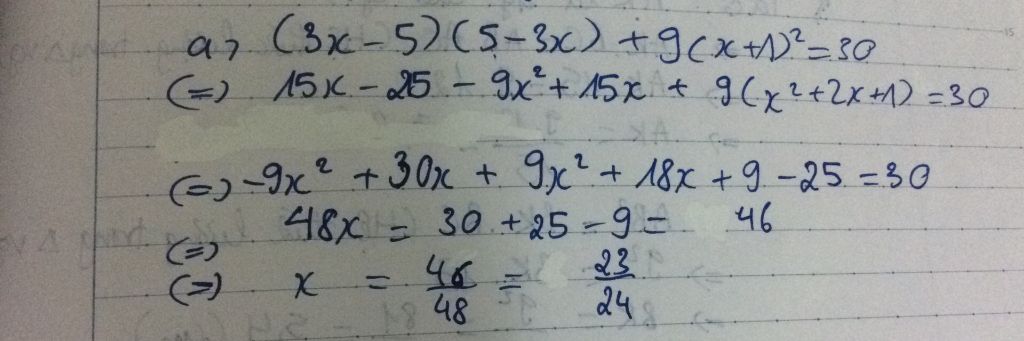 a, (3x - 5)(5 - 3x) + 9(x+1)² = 30
(=) 15x - 25 - 9x² + 15x + 9(x²+2x+1) = 30
(=) -9x² + 30x + 9x² + 18x + 9 - 25 = 30
(=) 48x = 30 + 25 - 9 = 46
(=) x = 46/48 = 23/24